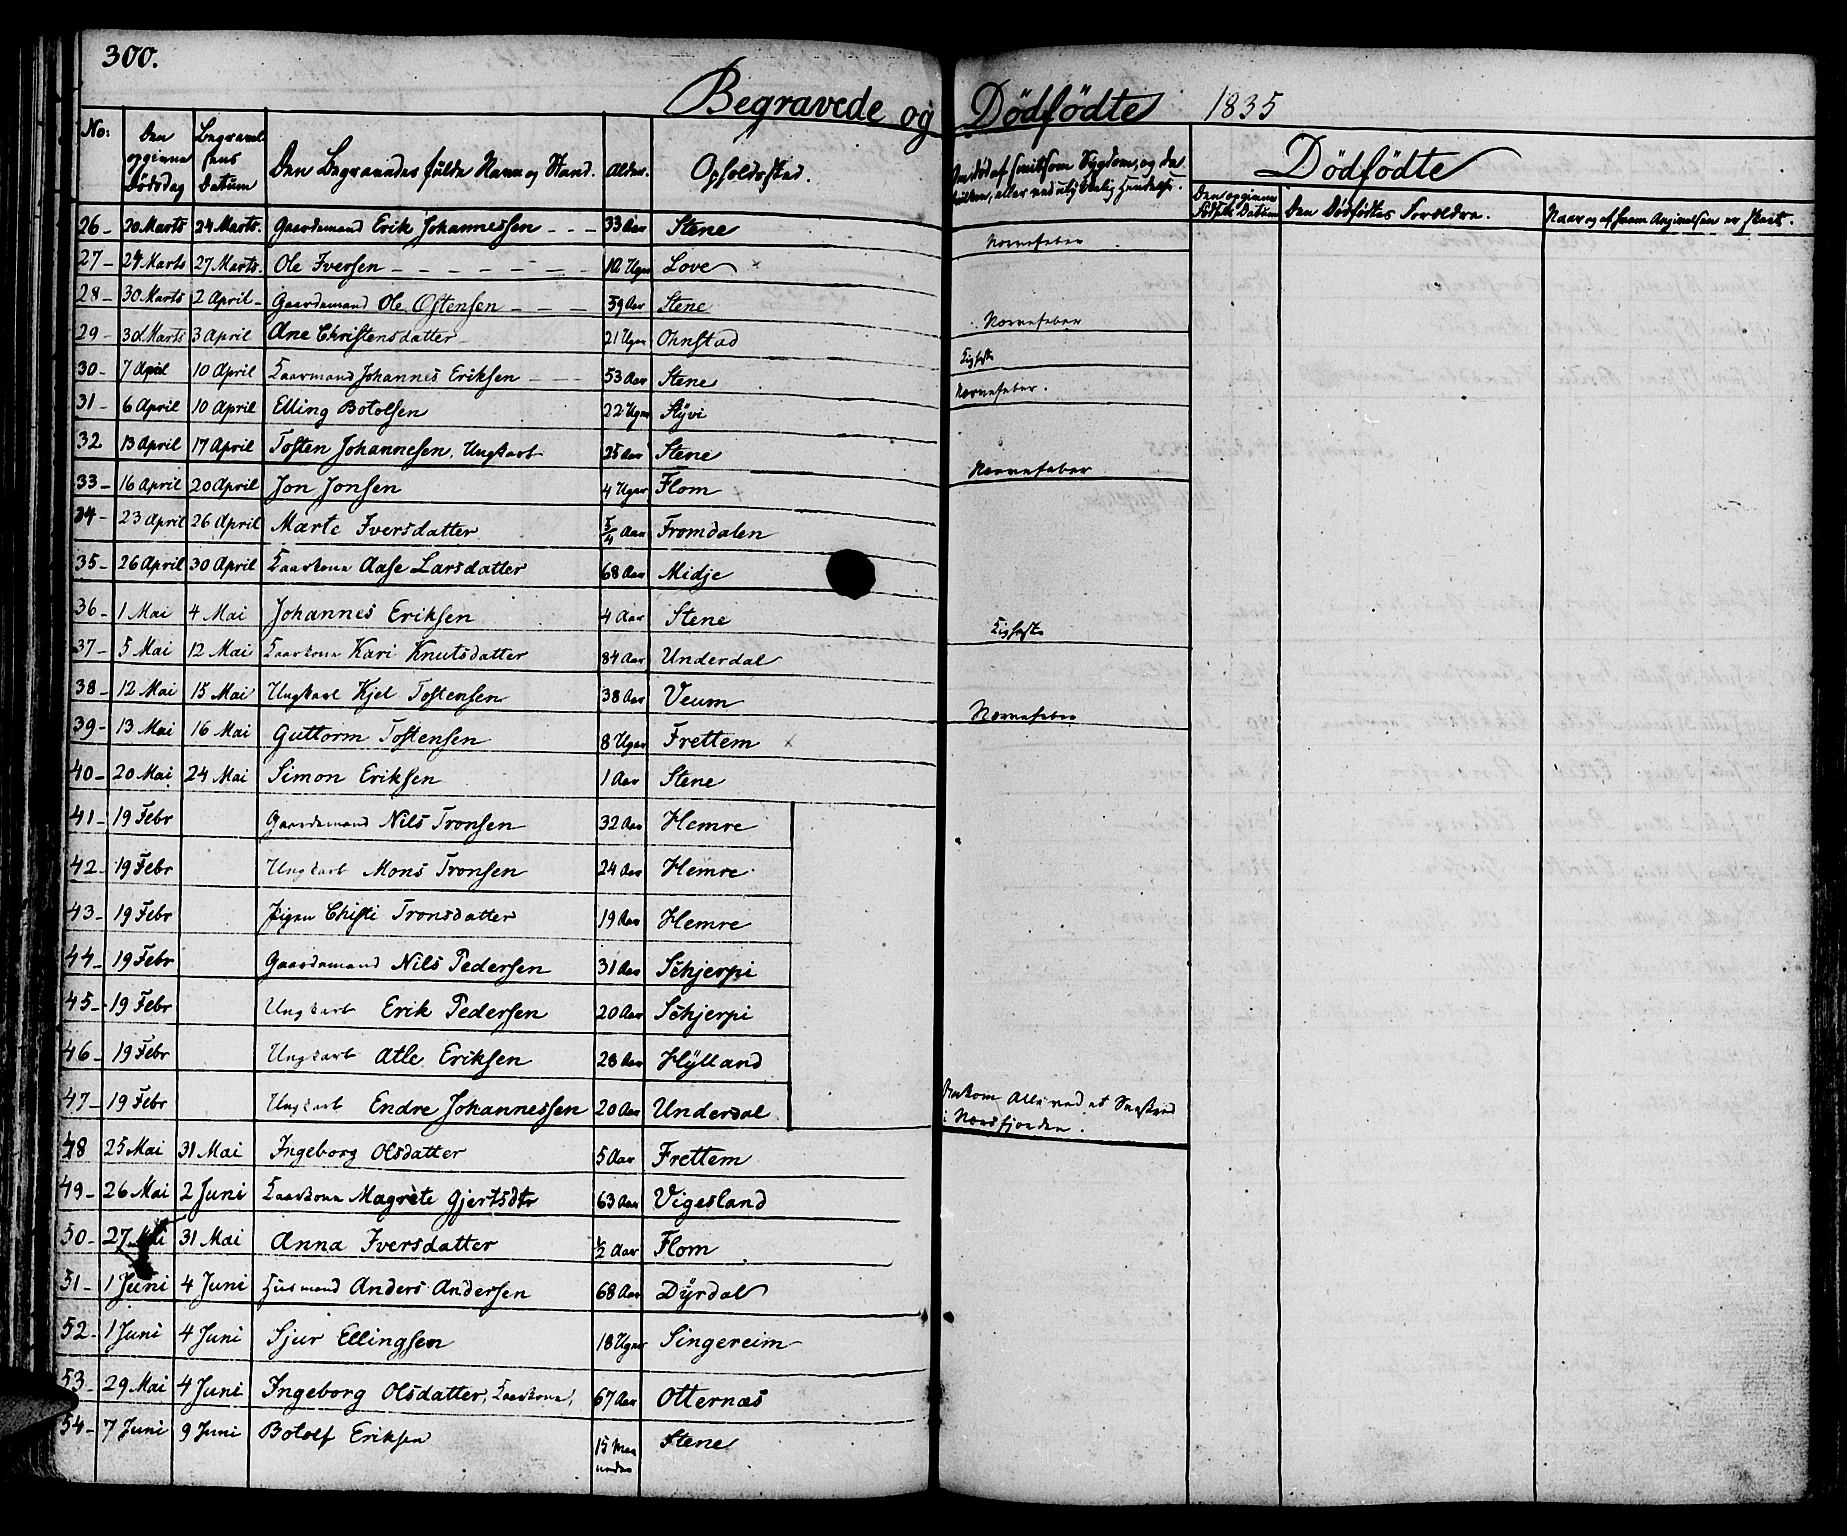 300.
Begravede og Dödfödte 1835
No: Den opgivne Dödsdag Begravelsens Datum Den Begravedes fulde Navn og Stand. Alder. Opholdssted. Om död af smitsom Sygdom, og da hvilken, eller ved ulykkelig Hendelse. Dödfödte
Den opgivne Födsels Datum Den Dödfödtes Forældre. Naar og af hvem Anginelsen er skeet.
26- 20 Marts 24 Marts. Gaardemand Erik Johannessen - - - 33 Aar Stene Nervefeber
27- 24 Marts 27 Marts. Ole Iversen - - - - - - - Uger Love x
28- 30 Marts 2 April- Gaardemand Ole Östensen - - - 59 Aar Stene Nervefeber
29- Marts 3 April Ane Christensdatter 21 Uger Ohnstad Kighoste
30- 7 April 10 April Kaarmand Johannes Eriksen 53 Aar Stene Nervefeber.
31- 6 April 10 April Elling Botolsen 22 Uger Styvi
32 13 April 17 April Tosten Johannesen, Ungkarl 25 Aar Stene Nervefeber
33- 16 April 20 April Jon Jonsen 4 Uger Flom
34- 23 April 26 April Marte Iversdatter 5/4 Aar Fromdalen
35- 26 April 30 April Kaarkona Aase Larsdatter 68 Aar Midje
36- 1 Mai 4 Mai Johannes Eriksen 4 Aar Stene Kighoste
37- 5 Mai 12 Mai Kaarkona Kari Knutsdatter 84 Aar Underdal
38- 12 Mai 15 Mai Ungkarl Kjel Tostensen 38 Aar Veum Nervefeber
39- 13 Mai 16 Mai Guttorm Tostensen 8 Uger Frettem x
40- 20 Mai 24 Mai Simon Eriksen 1 Aar Stene
41- 19 Febr Gaardemand Nils Tronsen 32 Aar Hemre
42- 19 Febr Ungkarl Mons Tronsen 24 Aar Hemre
43- 19 Febr Pigen Chisti Tronsdatter 19 Aar Hemre
44- 19 Febr Gaardemand Nils Pedersen 31 Aar Schjerpi
45- 19 Febr Ungkarl Erik Pedersen 20 Aar Schjerpi
46- 19 Febr Ungkarl Atle Eriksen 28 Aar Hylland
47- 19 Febr Ungkarl Endre Johannessen 20 Aar Underdal Omkom Alle ved et
i Nordfjorden.
48 25 Mai 31 Mai Ingeborg Olsdatter 5 Aar Frettem
49- 26 Mai 2 Juni Kaarkona Magrete Gjertsdtr 63 Aar Vigesland
50- 27 Mai 31 Mai Anna Iversdatter 1/2 Aar Flom
51- 1 Juni 4 Juni Husmand Anders Andersen 68 Aar Dyrdal
52- 1 Juni 4 Juni Sjur Ellingsen 18 Uger Singereim
53- 29 Mai 4 Juni Ingeborg Olsdatter, Kaarkona, 67 Aar Otternæs
54- 7 Juni 9 Juni Botolf Eriksen 15 Maaneder Stene